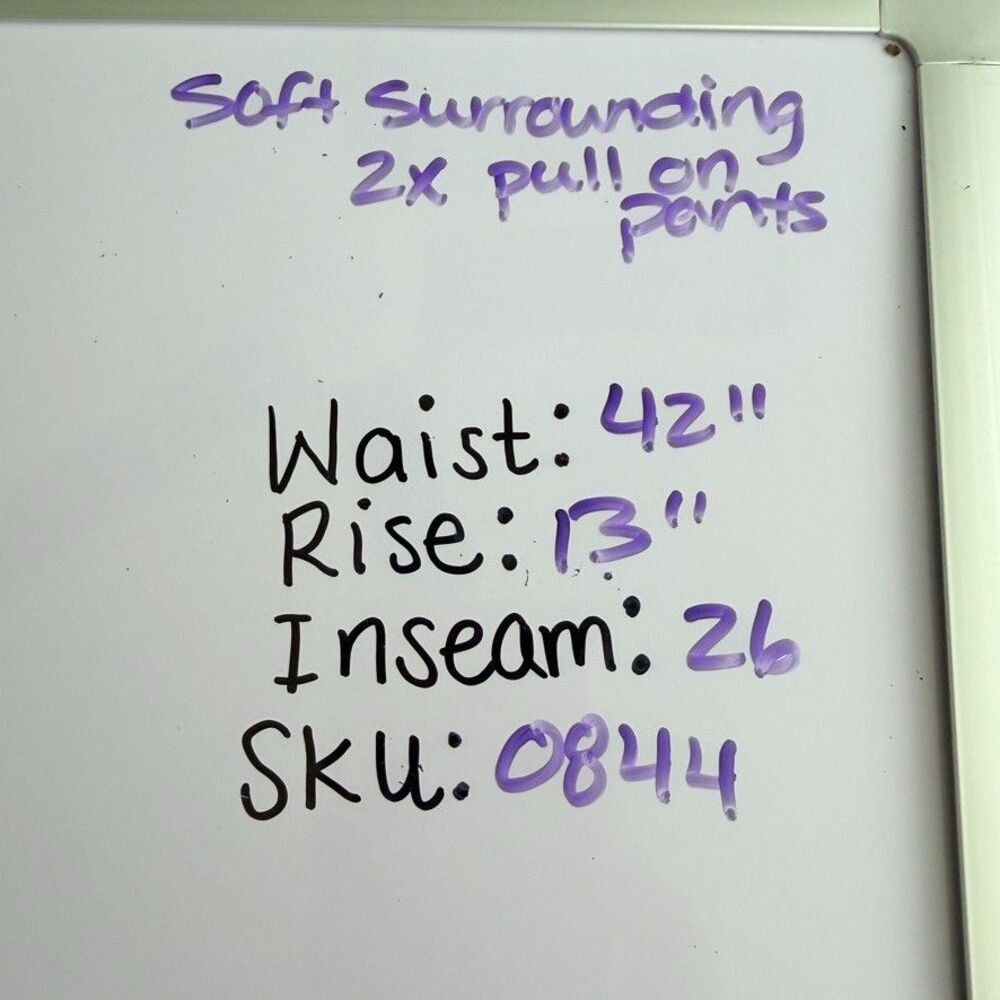 Soft Surrounding
2x pull on
pants
Waist: 42"
Rise: 13"
Inseam: 26
SKU: 0844